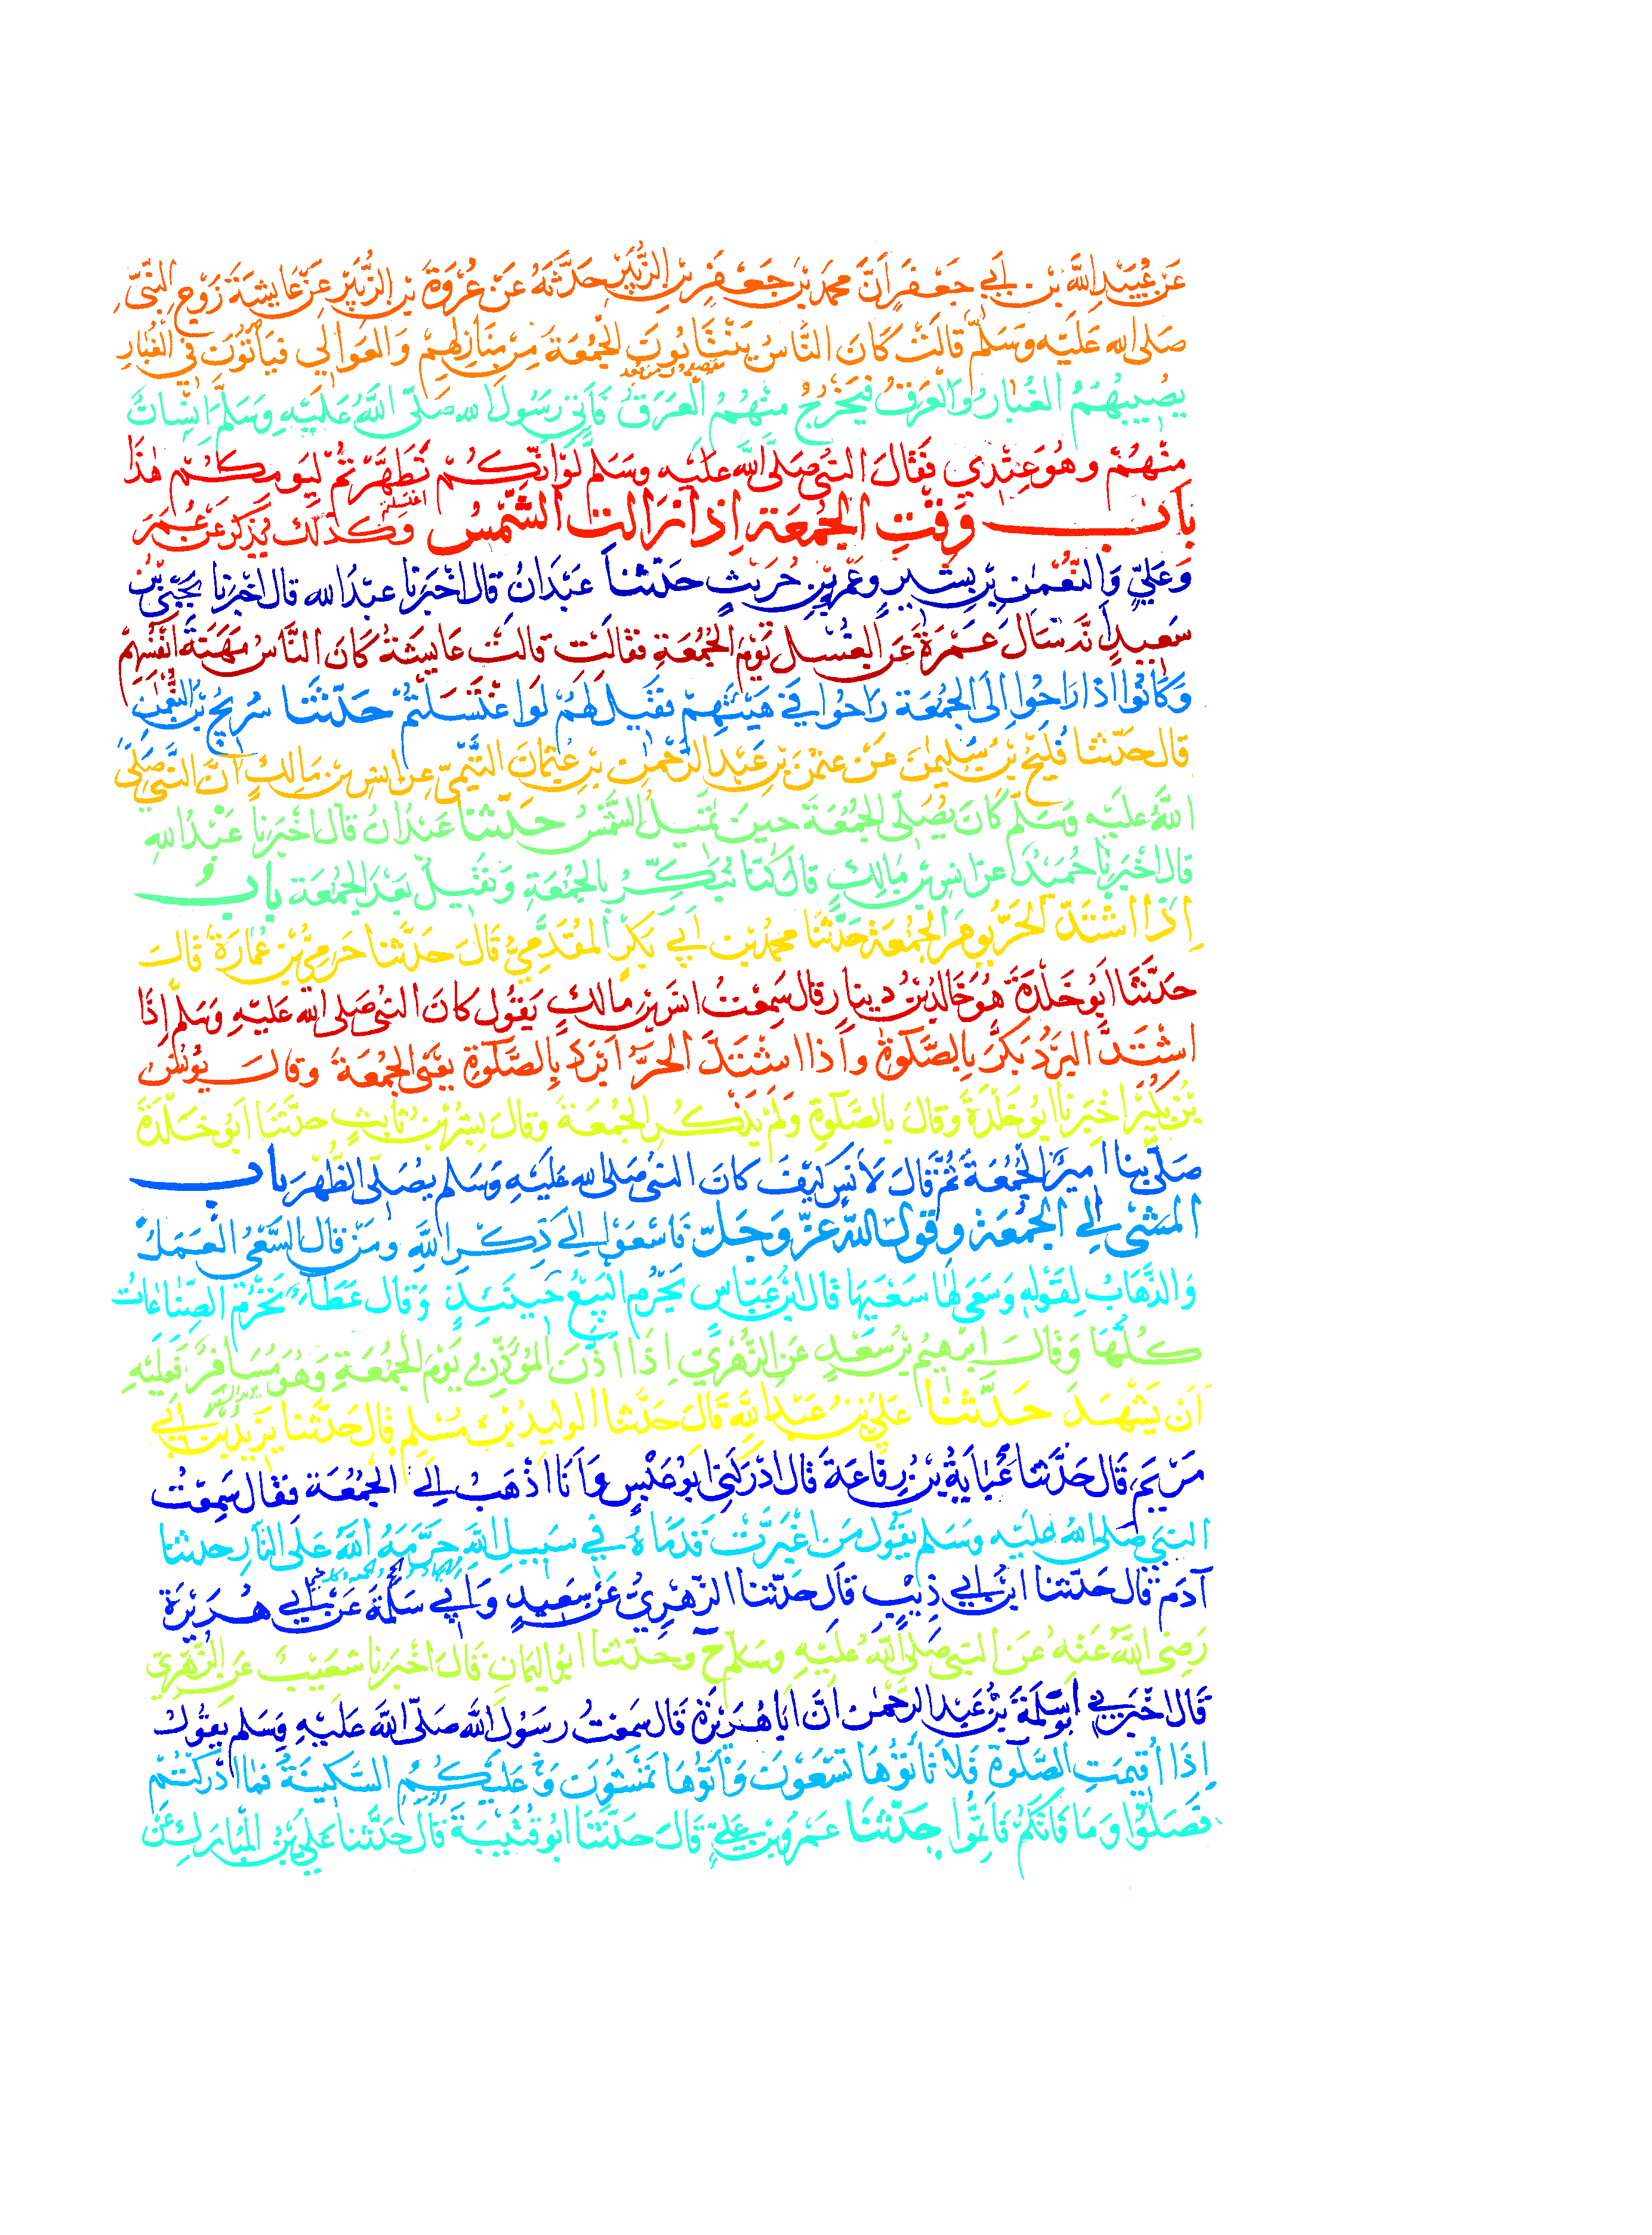 عَنْ عُبَيْدِ اللَّهِ بْنِ أَبِي جَعْفَرٍ أَنَّ مُحَمَّدَ بْنَ جَعْفَرِ بْنِ الزُّبَيْرِ حَدَّثَهُ عَنْ عُرْوَةَ بْنِ الزُّبَيْرِ عَنْ عَايِشَةَ زَوْجِ النَّبِيِّ
صَلَى الله عَلَيْهِ وَسَلَّمَ قَالَتْ كَانَ النَّاسُ يَنْتَابُونَ الْجُمُعَةَ مِنْ مَنَازِلِهِمْ وَالْعَوَالِي فَيَأْتُونَ فِي الْغُبَارِ
يُصِيبُهُمُ الْغُبَارُ وَالْعَرَقُ فَيَخْرُجُ مِنْهُمُ الْعَرَقُ فَأَتَى رَسُولَ الله صَلَّى اللَّهُ عَلَيْهِ وَسَلَّمَ إِنْسَانٌ
مِنْهُمْ وَهُوَ عِنْدِي فَقَالَ النَّبِيُّ صَلَّى اللَّهُ عَلَيْهِ وَسَلَّمَ لَوْ أَنَّكُمْ تَطَهَّرْتُمْ لِيَوْمِكُمْ هَذَا
بَابُ وَقْتِ الْجُمُعَةِ إِذَا زَالَتِ الشَّمْسُ وَكَذَلِكَ يُذْكَرُ عَنْ عُمَرَ
وَعَلِيٍّ وَالنُّعْمٰنِ بْنِ بَشِيرٍ وَعَمْرِو بْنِ حُرَيْثٍ حَدَّثَنَا عَبْدَانُ قَالَ أَخْبَرَنَا عَبْدُ الله قَالَ أَخْبَرَنَا يَحْيَى بْنُ
سَعِيدٍ أَنَّهُ سَأَلَ عَمْرَةَ عَنِ الْغُسْلِ يَوْمَ الْجُمُعَةِ فَقَالَتْ قَالَتْ عَايِشَةُ كَانَ النَّاسُ مَهَنَةَ أَنْفُسِهِمْ
وَكَانُوا إِذَا رَاحُوا إِلَى الْجُمُعَةِ رَاحُوا فِي هَيْئَتِهِمْ فَقِيلَ لَهُمْ لَوِ اغْتَسَلْتُمْ حَدَّثَنَا سُرَيْجُ بْنُ النُّعْمٰنِ
قَالَ حَدَّثَنَا فُلَيْحُ بْنُ سُلَيْمٰنَ عَنْ عُثْمٰنَ بْنِ عَبْدِ الرَّحْمٰنِ بْنِ عُثْمَانَ التَّيْمِيِّ عَنْ أَنَسِ بْنِ مَالِكٍ أَنَّ النَّبِيَّ صَلَّى
اللَّهُ عَلَيْهِ وَسَلَّمَ كَانَ يُصَلِّي الْجُمُعَةَ حِينَ تَمِيلُ الشَّمْسُ حَدَّثَنَا عَبْدَانُ قَالَ أَخْبَرَنَا عَبْدُ اللهِ
قَالَ أَخْبَرَنَا حُمَيْدٌ عَنْ أَنَسِ بْنِ مَالِكٍ قَالَ كُنَّا نُبَكِّرُ بِالْجُمُعَةِ وَنَقِيلُ بَعْدَ الْجُمُعَةِ بَابُ
إِذَا اشْتَدَّ الْحَرُّ يَوْمَ الْجُمُعَةِ حَدَّثَنَا مُحَمَّدُ بْنُ أَبِي بَكْرٍ الْمُقَدَّمِيُّ قَالَ حَدَّثَنَا حَرَمِيُّ بْنُ عُمَارَةَ قَالَ
حَدَّثَنَا أَبُو خَلْدَةَ هُوَ خَالِدُ بْنُ دِينَارٍ قَالَ سَمِعْتُ أَنَسَ بْنَ مَالِكٍ يَقُولُ كَانَ النَّبِيُّ صَلَى الله عَلَيْهِ وَسَلَّمَ إِذَا
اشْتَدَّ الْبَرْدُ بَكَّرَ بِالصَّلَوةِ وَإِذَا اشْتَدَّ الْحَرُّ أَبْرَدَ بِالصَّلَوةِ يَعْنِي الْجُمُعَةَ وَقَالَ يُونُسُ
بْنُ بُكَيْرٍ أَخْبَرَنَا أَبُو خَلْدَةَ وَقَالَ بِالصَّلَوةِ وَلَمْ يَذْكُرِ الْجُمُعَةَ وَقَالَ بِشْرُ بْنُ ثَابِتٍ حَدَّثَنَا أَبُو خَلْدَةَ
صَلَّى بِنَا أَمِيرٌ الْجُمُعَةَ ثُمَّ قَالَ لِأَنَسٍ كَيْفَ كَانَ النَّبِيُّ صَلى الله عَلَيْهِ وَسَلم يُصَلِّي الظُّهْرَ بَابُ
الْمَشْيِ إِلَى الْجُمُعَةِ وَقَوْلِ اللَّهِ عَزَّ وَجَلَّ فَاسْعَوْا إِلَى ذِكْرِ اللَّهِ وَمَنْ قَالَ السَّعْيُ الْعَمَلُ
وَالذَّهَابُ لِقَوْلِهِ وَسَعَى لَهَا سَعْيَهَا قَالَ ابْنُ عَبَّاسٍ يَحْرُمُ الْبَيْعُ حِينَئِذٍ وَقَالَ عَطَاءٌ تَحْرُمُ الصِّنَاعَاتُ
كُلُّهَا وَقَالَ إِبْرٰهِيمُ بْنُ سَعْدٍ عَنِ الزُّهْرِيِّ إِذَا أَذَّنَ الْمُؤَذِّنُ يَوْمَ الْجُمُعَةِ وَهُوَ مُسَافِرٌ فَعَلَيْهِ
أَنْ يَشْهَدَ حَدَّثَنَا عَلِيُّ بْنُ عَبْدِ اللَّهِ قَالَ حَدَّثَنَا الْوَلِيدُ بْنُ مُسْلِمٍ قَالَ حَدَّثَنَا يَزِيدُ بْنُ أَبِي
مَرْيَمَ قَالَ حَدَّثَنَا عَبَايَةُ بْنُ رِفَاعَةَ قَالَ أَدْرَكَنِي أَبُو عَبْسٍ وَأَنَا أَذْهَبُ إِلَى الْجُمُعَةِ فَقَالَ سَمِعْتُ
النَّبِيَّ صَلى اللهُ عَلَيْهِ وَسَلم يَقُولُ مَنِ اغْبَرَّتْ قَدَمَاهُ فِي سَبِيلِ اللَّهِ حَرَّمَهُ اللَّهُ عَلَى النَّارِ حدثنا
آدَمُ قَالَ حَدَّثَنَا ابْنُ أَبِي ذِيْبٍ قَالَ حَدَّثَنَا الزُّهْرِيُّ عَنْ سَعِيدٍ وَأَبِي سَلَمَةَ عَنْ أَبِي هُرَيْرَةَ
رَضِيَ اللَّهُ عَنْهُ عَنِ النَّبِيِّ صَلَّى اللَّهُ عَلَيْهِ وَسَلَّمَ ح وَحَدَّثَنَا أَبُو الْيَمَانِ قَالَ أَخْبَرَنَا شُعَيْبٌ عَنِ الزُّهْرِيِّ
قَالَ أَخْبَرَنِي أَبُو سَلَمَةَ بْنُ عَبْدِ الرَّحْمٰنِ أَنَّ أَبَا هُرَيْرَةَ قَالَ سَمِعْتُ رَسُولَ اللَّهِ صَلَّى اللَّهُ عَلَيْهِ وَسَلم يَقُولُ
إِذَا أُقِيمَتِ الصَّلَوةُ فَلَا تَأْتُوهَا تَسْعَوْنَ وَأْتُوهَا تَمْشُونَ وَعَلَيْكُمُ السَّكِينَةُ فَمَا أَدْرَكْتُمْ
فَصَلُّوا وَمَا فَاتَكُمْ فَأَتِمُّوا حَدَّثَنَا عَمْرُو بْنُ عَلِيٍّ قَالَ حَدَّثَنَا أَبُو قُتَيْبَةَ قَالَ حَدَّثَنَا عَلِيُّ بْنُ الْمُبَارَكِ عَنْ